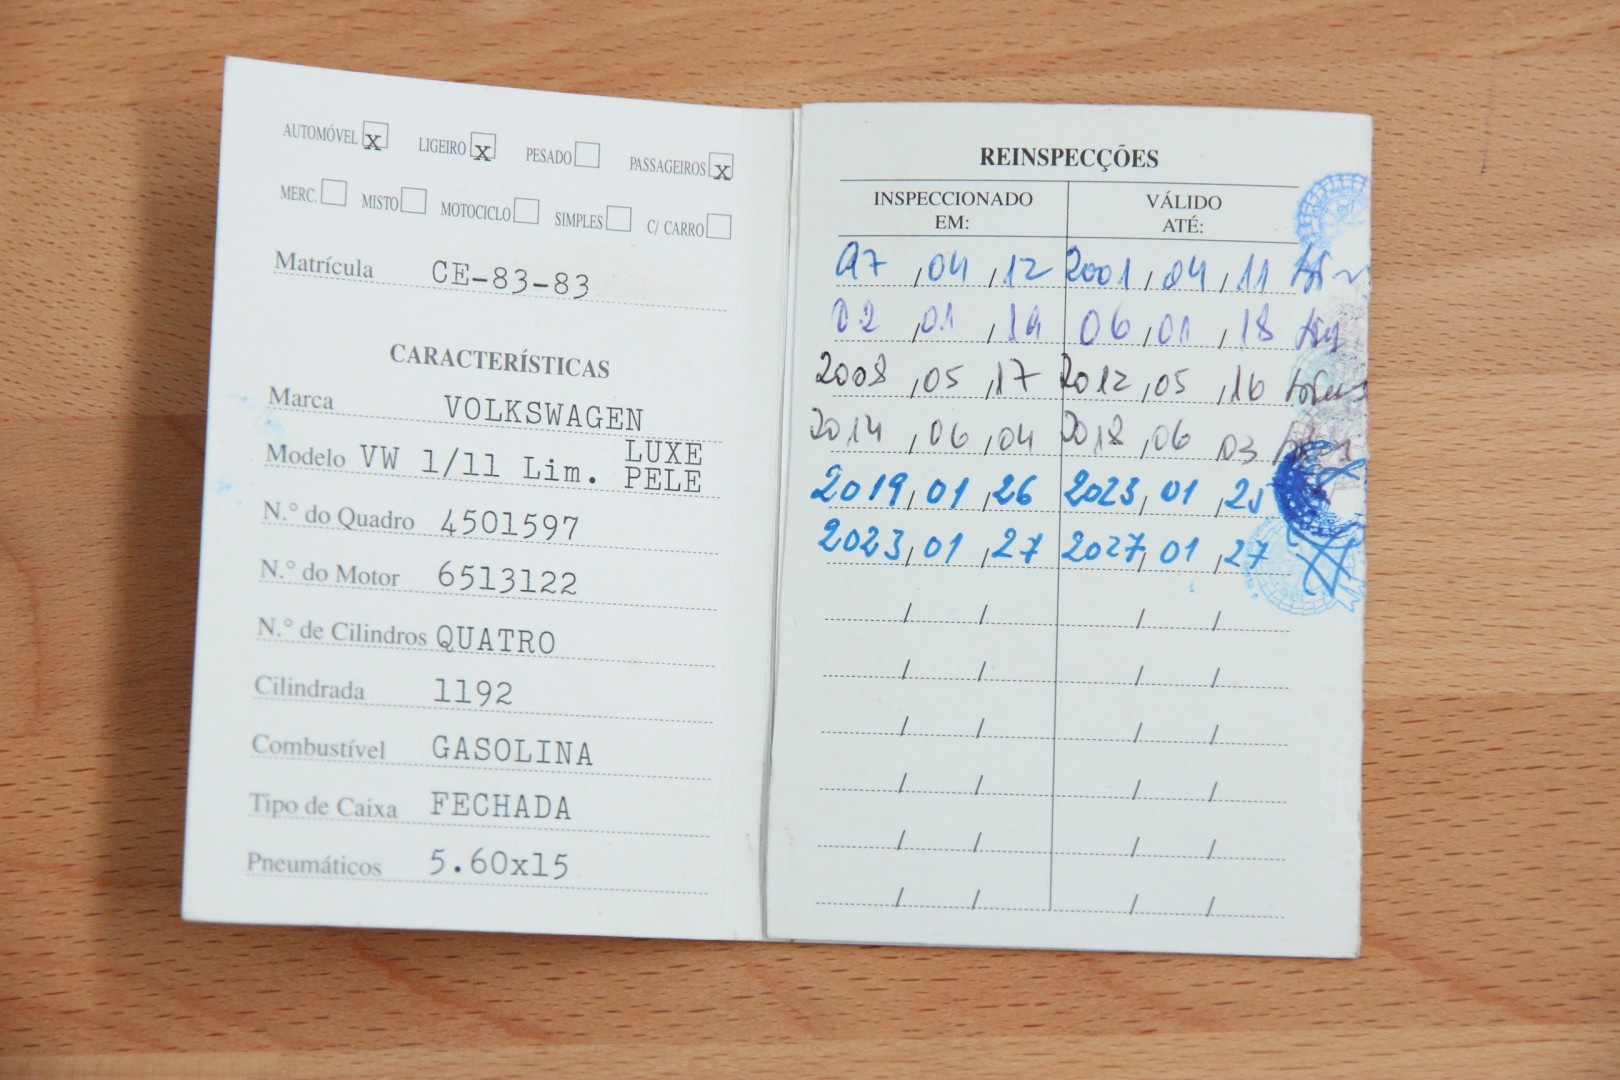 AUTOMÓVEL x LIGEIRO x PESADO PASSAGEIROS x
MERC. MISTO MOTOCICLO SIMPLES C/ CARRO
Matrícula CE-83-83
CARACTERÍSTICAS
Marca VOLKSWAGEN
Modelo VW 1/11 Lim. LUXE PELE
N.º do Quadro 4501597
N.º do Motor 6513122
N.º de Cilindros QUATRO
Cilindrada 1192
Combustível GASOLINA
Tipo de Caixa FECHADA
Pneumáticos 5.60x15
REINSPECÇÕES
INSPECCIONADO EM: VÁLIDO ATÉ:
97/04/12 2001/04/11
02/01/19 06/01/18
2008/05/17 2012/05/16
2014/06/04 2018/06/03
2019/01/26 2023/01/25
2023/01/27 2027/01/27
/ / / /
/ / / /
/ / / /
/ / / /
/ / / /
/ / / /